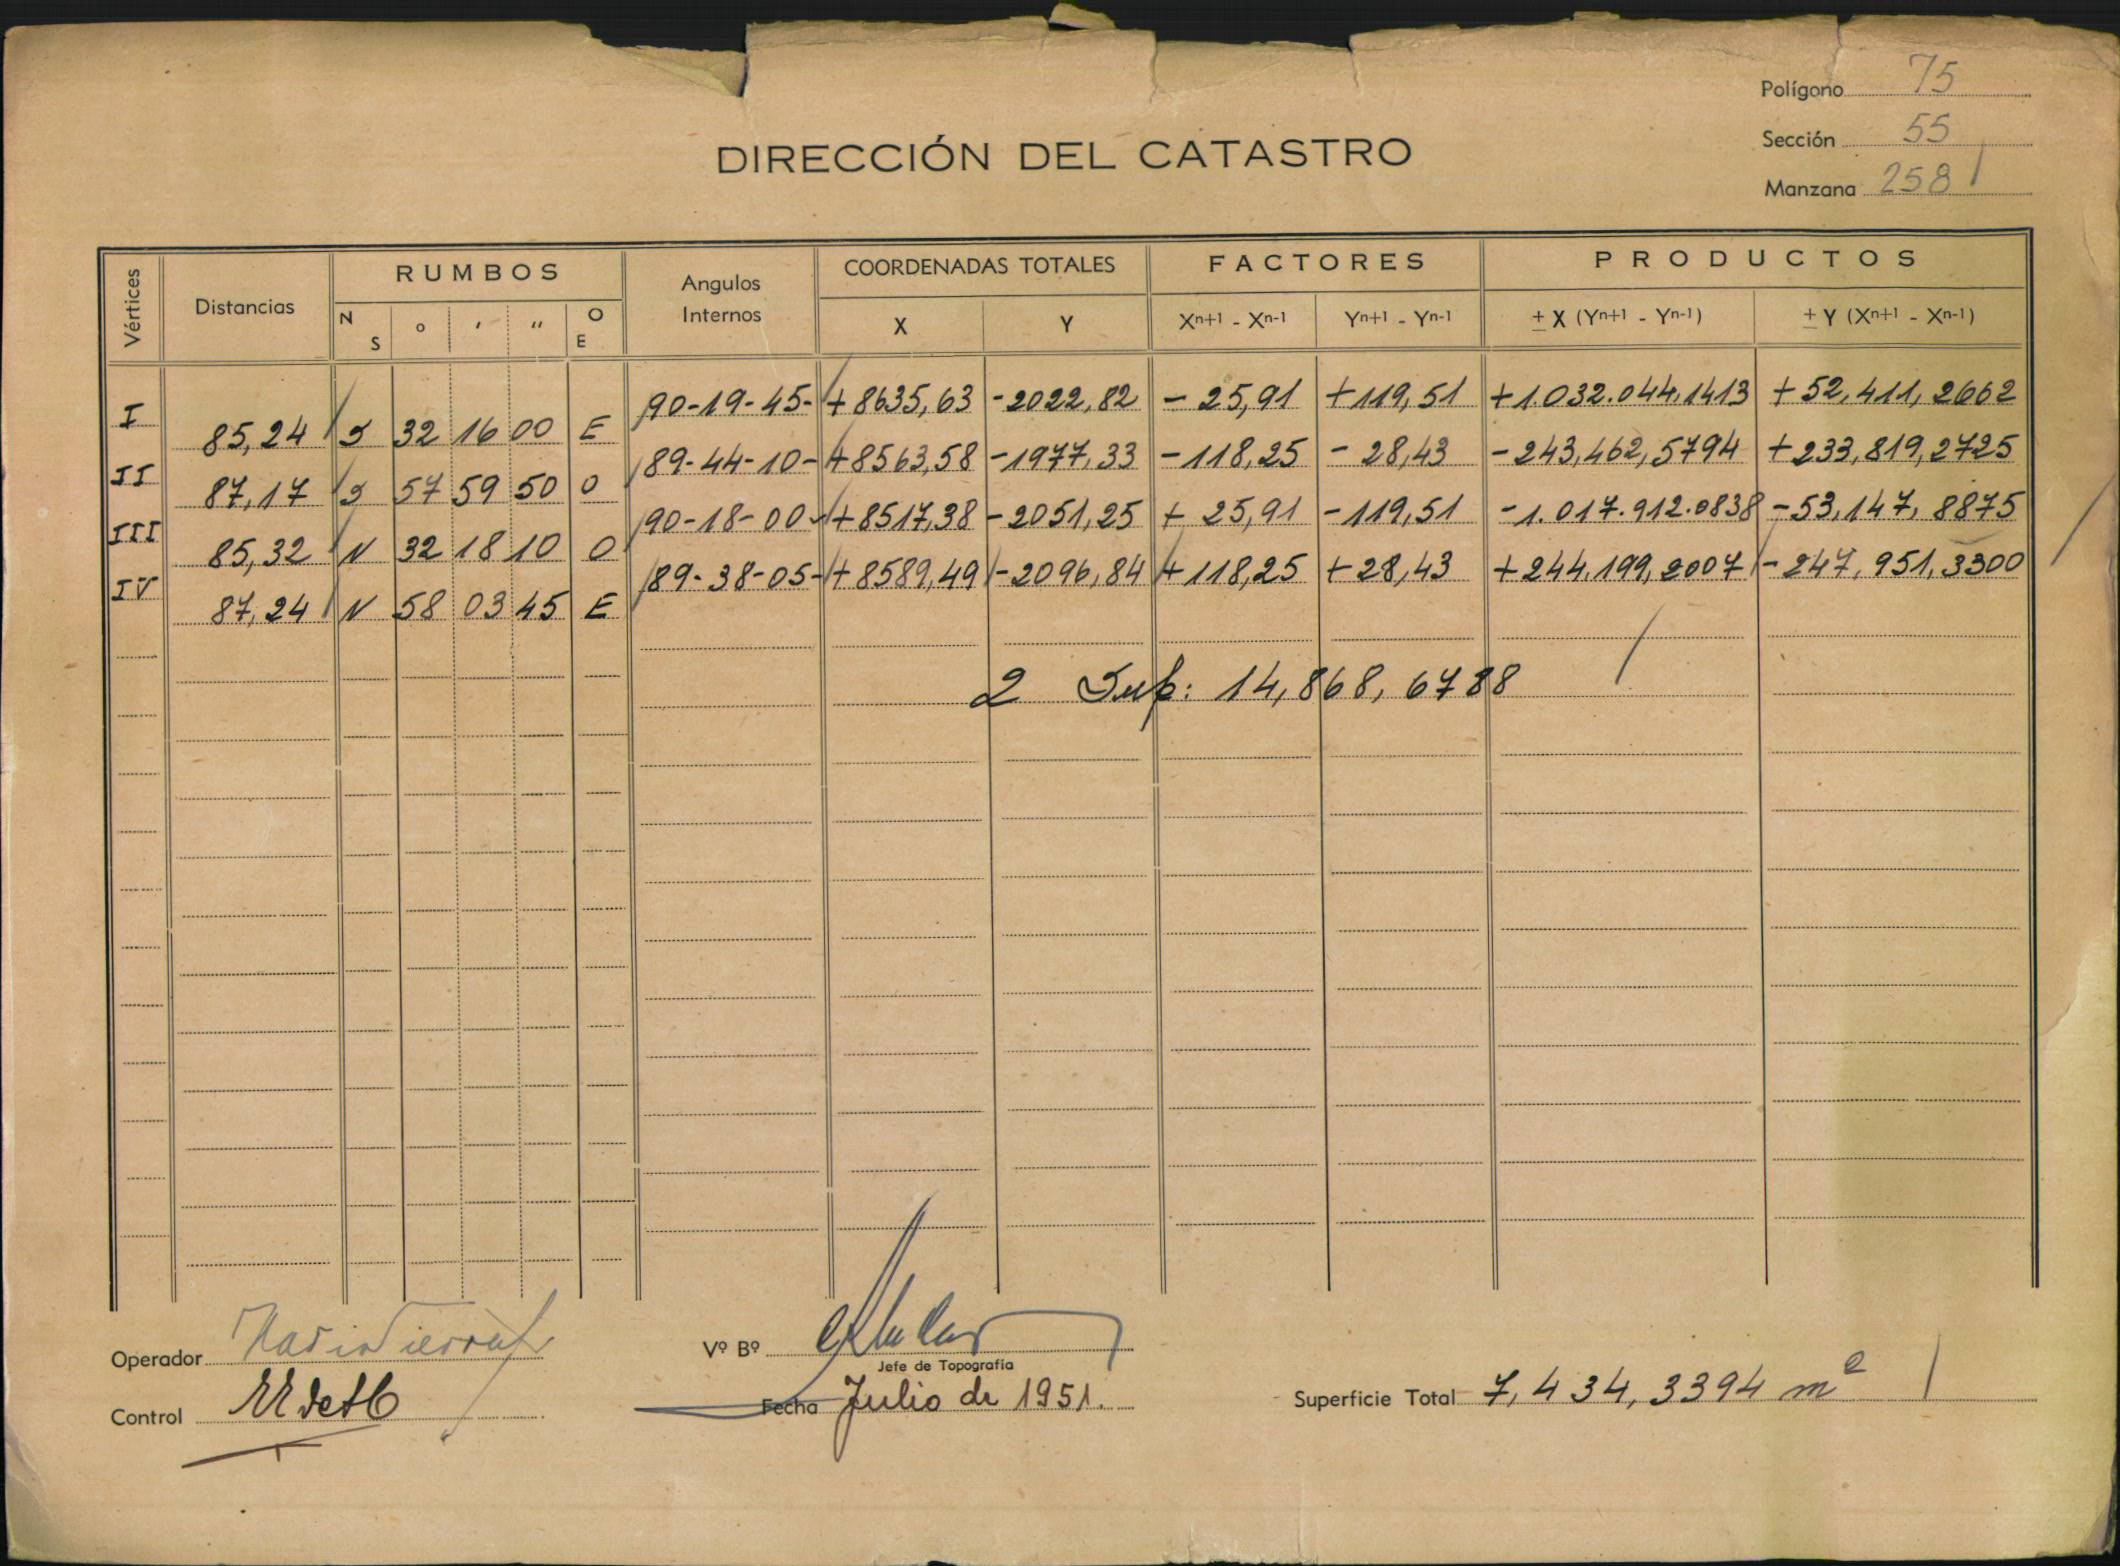 Polígono 75
Sección 55
Manzana 258
DIRECCIÓN DEL CATASTRO
Vértices Distancias RUMBOS Angulos Internos COORDENADAS TOTALES FACTORES PRODUCTOS
N S o ' " O E X Y Xn+1 - Xn-1 Yn+1 - Yn-1 ± X (Yn+1 - Yn-1) ± Y (Xn+1 - Xn-1)
I 90-19-45- +8635,63 -2022,82 - 25,91 +119,51 +1.032.044,1413 +52,411,2662
85,24 S 32 16 00 E
II 89-44-10- +8563,58 -1977,33 -118,25 - 28,43 -243,462,5794 +233,819,2725
87,17 S 57 59 50 O
III 90-18-00- +8517,38 -2051,25 + 25,91 -119,51 -1.017.912.0838 -53,147,8875
85,32 N 32 18 10 O
IV 89-38-05- +8589,49 -2096,84 +118,25 +28,43 +244.199,2007 -247,951,3300
87,24 N 58 03 45 E
2 Sup: 14,868,6788
Operador
Vº Bº
Jefe de Topografía
Control
Fecha Julio de 1951.
Superficie Total 7,434,3394 m²